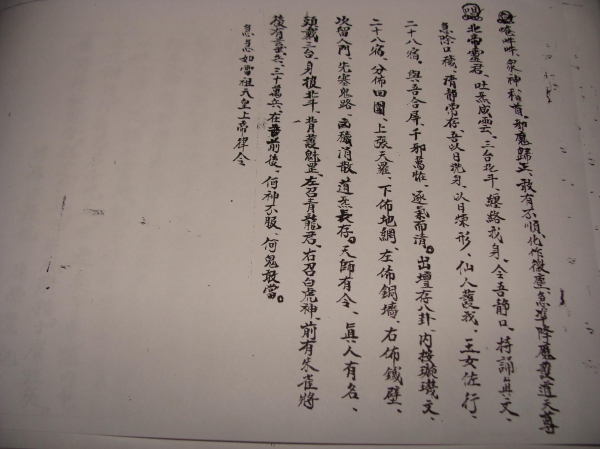 唵吽吽、眾神稽首、邪魔歸正、敢有不順、化作微塵、急準降魔護道天尊
北帝靈君、吐炁成雲、三台北斗、纏絡我身、令吾靜口、持誦真文、
急除口穢、清靜常存、吾以日洗身、以月煉形、仙人護我、玉女佐行、
二十八宿、與吾合屏、千邪萬穢、逐氣而清。出壇存八卦、內按璇璣文、
二十八宿、分佈四圍、上張天羅、下佈地網、左佈銅墻、右佈鐵壁、
次留人門、先塞鬼路、凶穢消散、道炁長存。天師有令、真人有名、
頭戴三台、身披北斗、背負魁罡、左召青龍君、右召白虎神、前有朱雀將
後有玄武兵、三十萬兵、在吾前後、何神不服、何鬼敢當。
急急如雷祖天皇上帝律令